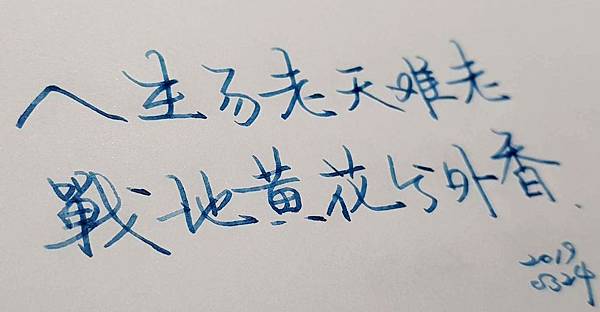 人生易老天难老
戰地黄花分外香.
2019
0324